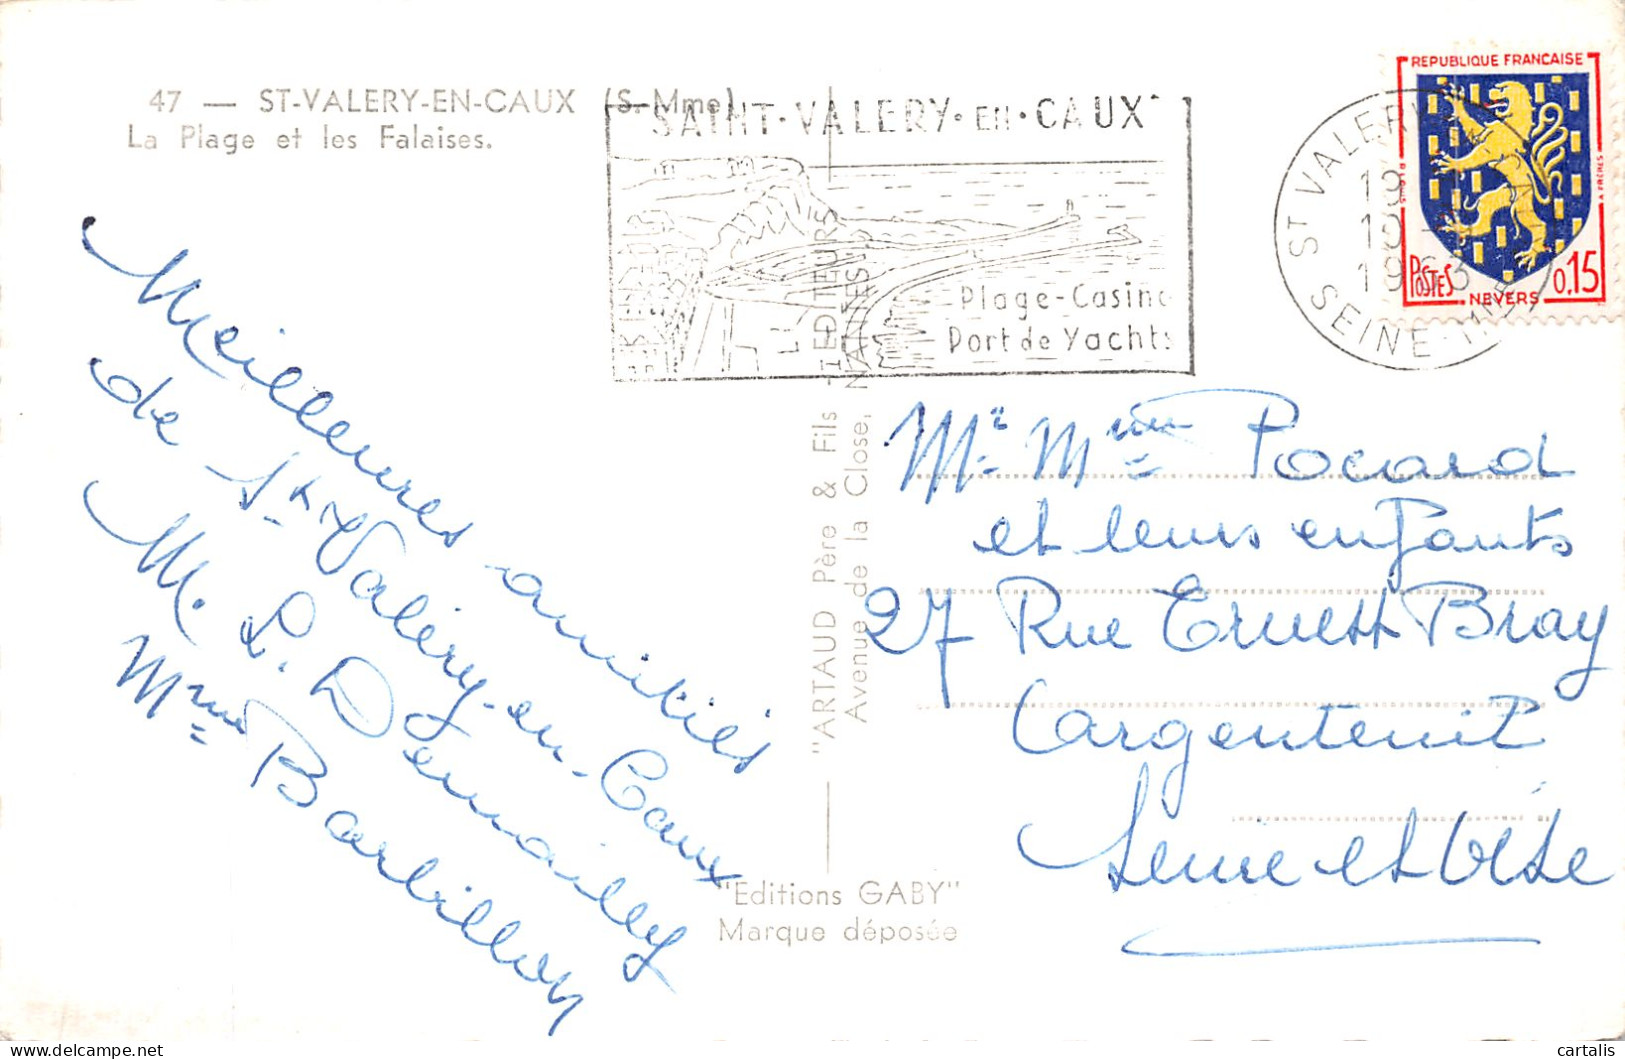 47 — ST-VALERY-EN-CAUX (S.-Mme)
La Plage et les Falaises.
SAINT·VALERY·EN·CAUX
Plage-Casino
Port de Yachts
ST VALERY
19
10 -
1963
SEINE-MME
REPUBLIQUE FRANCAISE
POSTES
NEVERS
0,15
Meilleures amitiés
de St Valéry-en-Caux
M. L. Demailly
Mme Barbillon
"ARTAUD Père & Fils EDITEURS
Avenue de la Close, NANTES
"Editions GABY"
Marque déposée
Mr Mme Pocard
et leurs enfants
27 Rue Ernest Bray
Argenteuil
Seine et Oise
cartalis